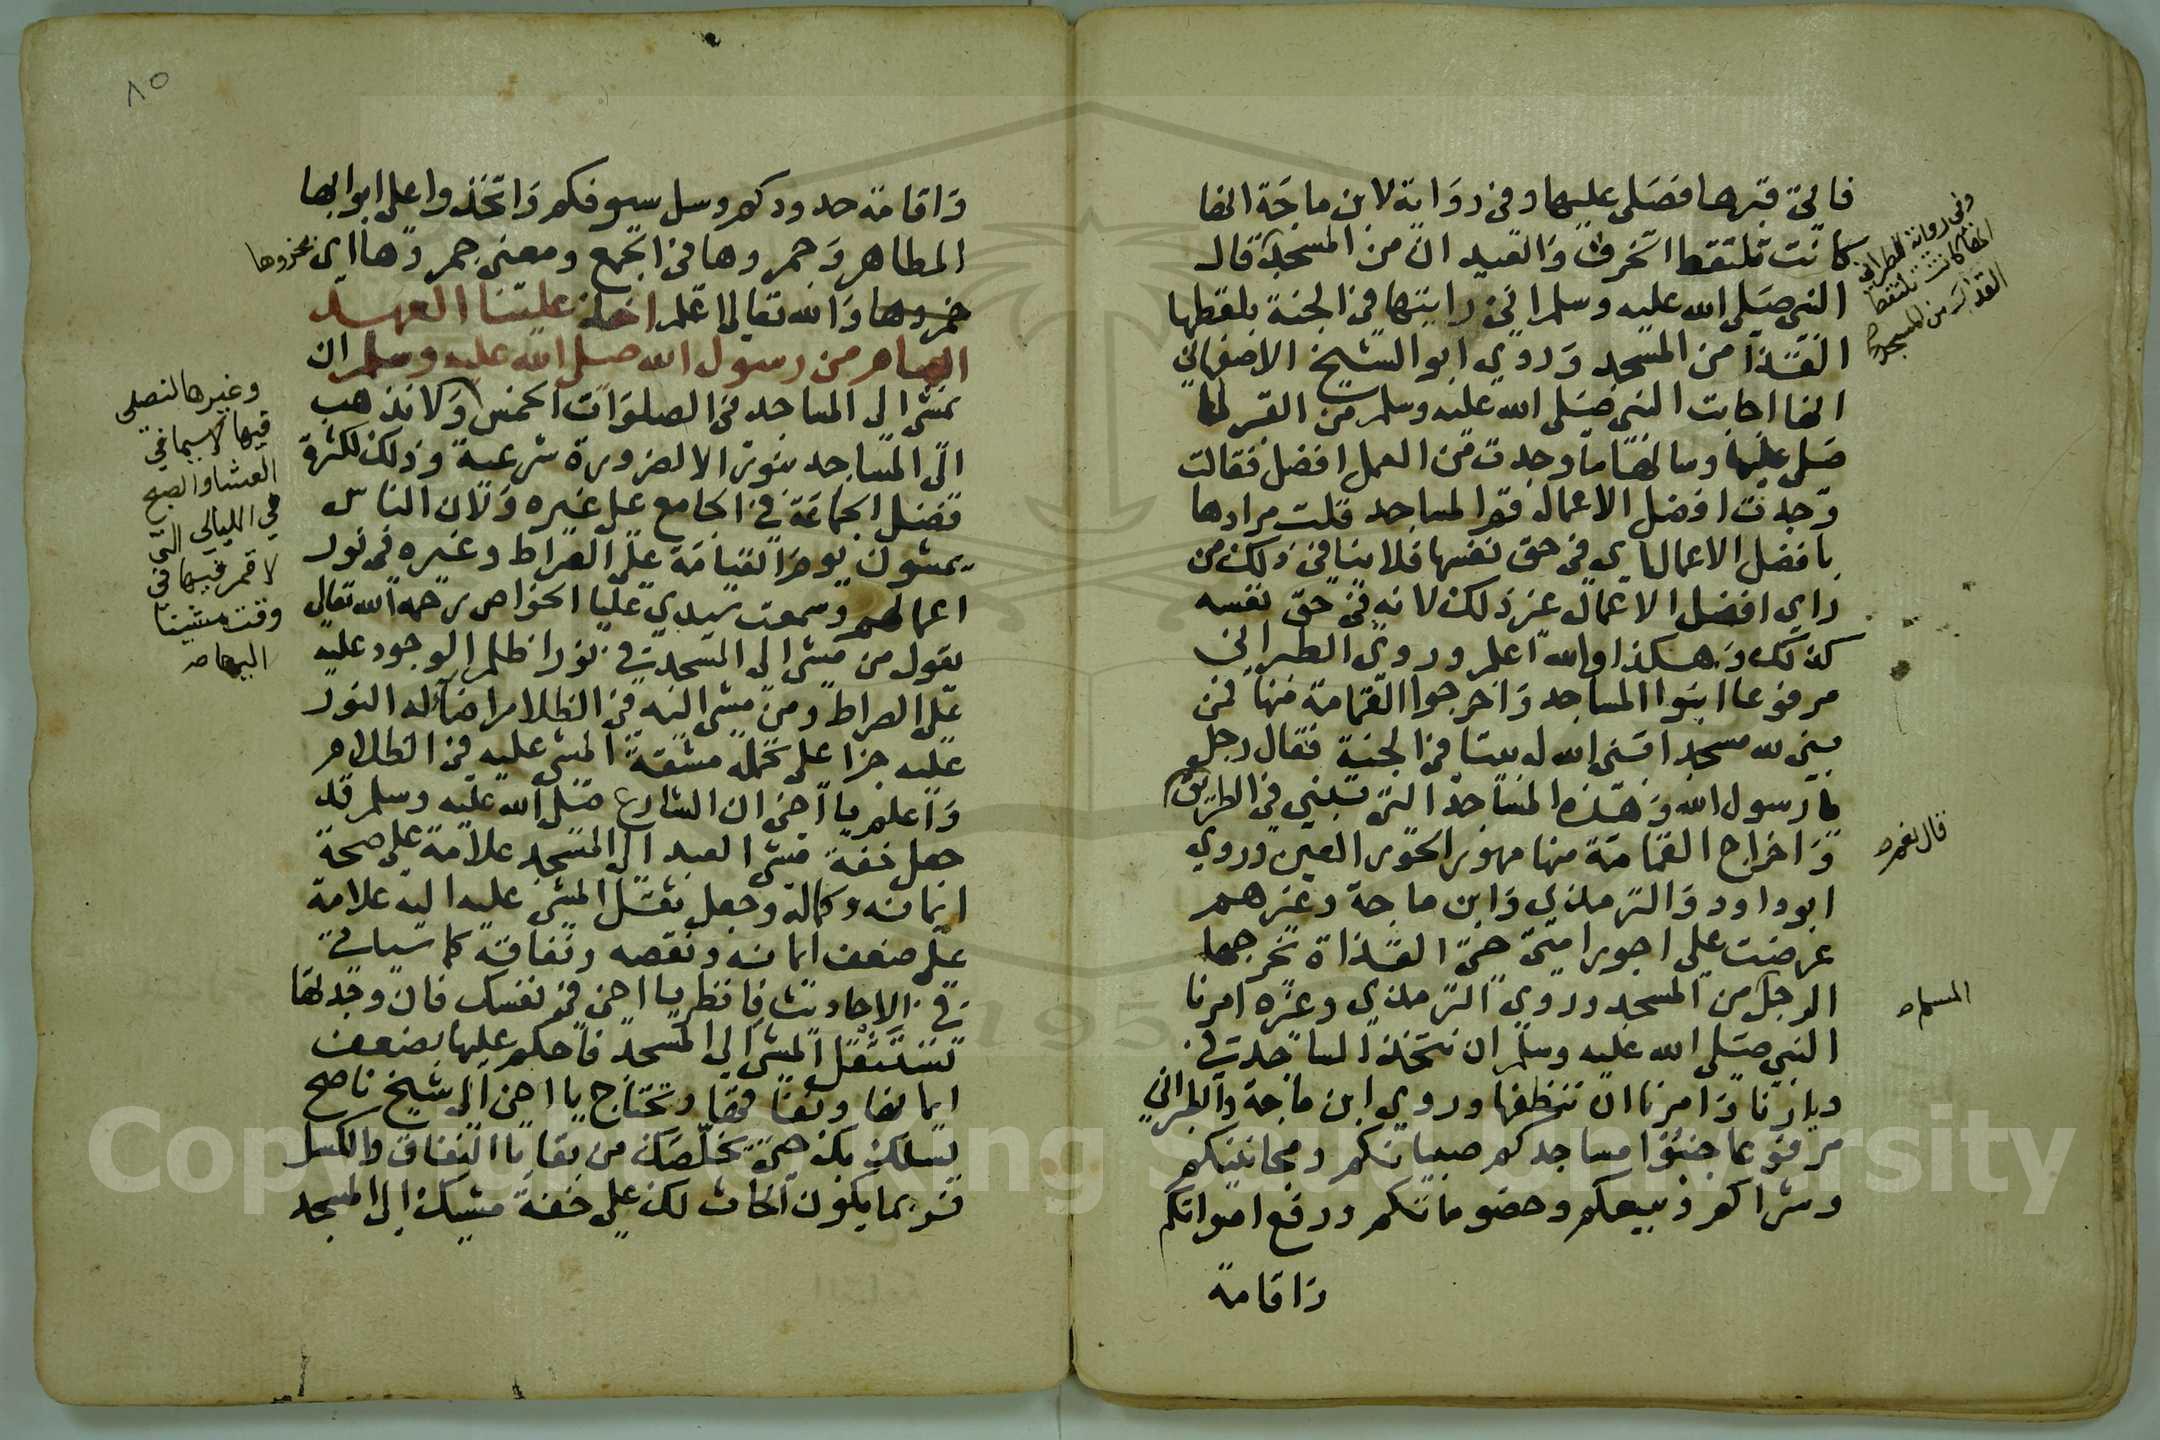 فاتى قبرها فصلى عليها وفي رواية لابن ماجة انها
كانت تلتقط الخرق والعيدان من المسجد قال
النبي صلى الله عليه وسلم اني رايتها في الجنة بلقطها
القذا من المسجد وروي ابو الشيخ الاصفهاني
انها اجابت النبي صلى الله عليه وسلم من القبر لما
صلى عليها وسالها ما وجدت من العمل افضل فقالت
وجدت افضل الاعمال قم المساجد قلت مرادها
بافضل الاعمال اي في حق نفسها فلا ينافي ذلك من
راي افضل الاعمال غير ذلك لانه في حق نفسه
كذلك وهكذا والله اعلم وروي الطبراني
مرفوعا ابنوا المساجد واخرجوا القمامة منها فمن
بنى لله مسجدا بنى الله له بيتا في الجنة فقال رجل
يا رسول الله وهذه المساجد التي تبنى في الطريق
واخراج القمامة منها مهور الحور العين وروي
ابو داود والترمذي وابن ماجة وغيرهم
عرضت علي اجور امتي حتى القذاة يخرجها
الرجل من المسجد وروي الترمذي وغيره امرنا
النبي صلى الله عليه وسلم ان نتخذ المساجد في
ديارنا وامرنا ان ننظفها وروي ابن ماجة والطبراني
مرفوعا جنبوا مساجدكم صبيانكم ومجانينكم
وشراكم وبيعكم وخصوماتكم ورفع اصواتكم
واقامة
وفي رواية للطبراني
انها كانت تلتقط
القذا من المسجد
قال نعم
المسلم
٨٥
واقامة حدودكم وسل سيوفكم واتخذوا على ابوابها
المطاهر وجمروها في الجمع ومعنى جمروها اي بخروها
خمروها والله تعالى اعلم اخذ علينا العهد
العام من رسول الله صلى الله عليه وسلم ان
نمشي الى المساجد في الصلوات الخمس ولا نذهب
الى المساجد بنور الا لضرورة شرعية وذلك لكثرة
فضل الجماعة في الجامع على غيره ولان الناس
يمشون يوم القيامة على الصراط وغيره في نور
اعمالهم وسمعت سيدي عليا الخواص رحمه الله تعالى
يقول من مشى الى المسجد في نور اظلم الوجود عليه
على الصراط ومن مشى اليه في الظلام اضاء له النور
عليه جزا على تحمله مشقة المشي عليه في الظلام
واعلم يا اخي ان الشارع صلى الله عليه وسلم قد
جعل خفة مشي العبد الى المسجد علامة على صحة
ايمانه وكماله وجعل ثقل المشي عليه اليه علامة
على ضعف ايمانه ونقصه ونفاقه كما سياتي
في الاحاديث فانظر يا اخي في نفسك فان وجدتها
تستثقل المشي الى المسجد فاحكم عليها بضعف
ايمانها ونفاقها وتحتاج يا اخي الى شيخ ناصح
يسلك بك حتى يخلصك من بقايا النفاق والكسل
فربما يكون الحاث لك على خفة مشيك الى المسجد
وغيرها لنصلي
فيها لا سيما في
العشا والصبح
في الليالي التي
لا قمر فيها في
وقت مشينا
اليها
Copyright © King Saud University
1957